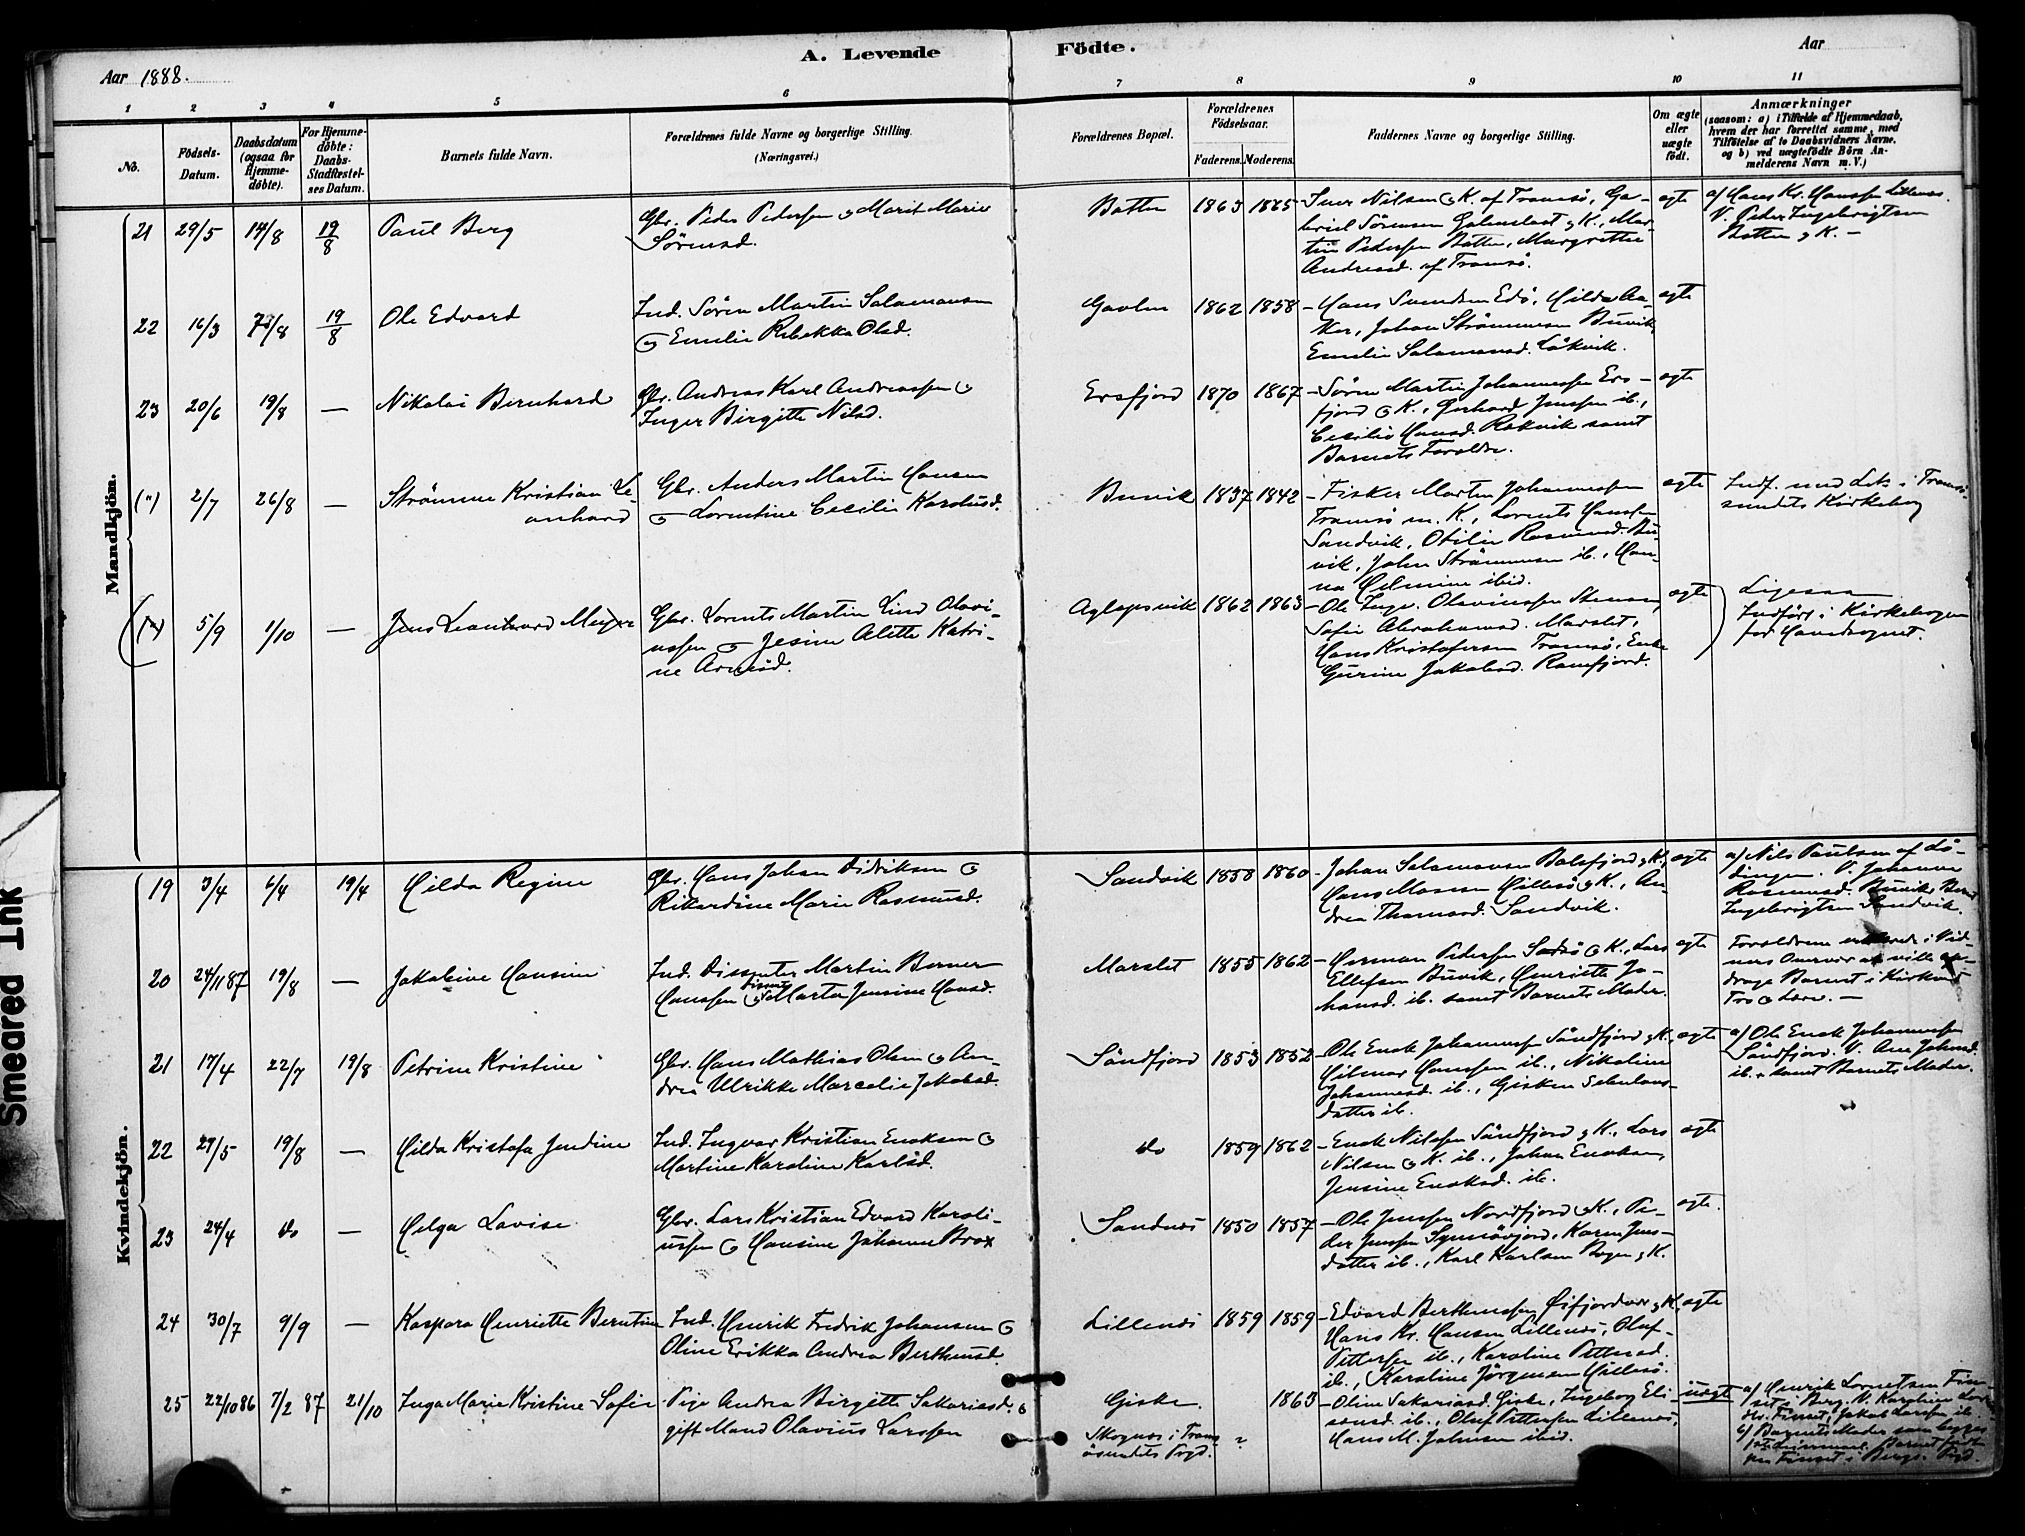 A. Levende Födte.
Aar 1888.
Aar
1 2 3 4 5 6 7 8 9 10 11
No.
Födsels-Datum.
Daabsdatum (ogsaa for Hjemme-döbte).
For Hjemme-döbte: Daabs-Stadfæstel-ses Datum.
Barnets fulde Navn.
Forældrenes fulde Navne og borgerlige Stilling.
(Næringsvei.)
Forældrenes Bopæl.
Forældrenes Födselsaar.
Faderens. Moderens.
Faddernes Navne og borgerlige Stilling.
Om ægte eller uægte födt.
Anmærkninger
(saasom: a) i Tilfælde af Hjemmedaab,
hvem der har forrettet samme, med
Tilföielse af to Daabsvidners Navne,
og b) ved uægtefödte Börn An-
melderens Navn m. V.)
Mandkjön.
21 29/5 14/8 19/8 Paul Berg
Gbr. Peder Pedersen & Marit Marie
Sörensd.
Botten 1863 1865
Iver Nilsen & K. af Tromsö, Ga-
briel Sörensen & K., Mar-
tin Pedersen Botten, Margrethe
Andreasd. af Tromsö.
ægte
a) Hans Kr. Hanssen Lillenes.
V. Peder Ingebrigtsen
Botten & K. —
22 16/3 7/8 19/8 Ole Edvard
Ind. Sören Martin Salamonsen
& Emelie Rebekka Olsd.
1862 1858
Hans Svendsen Edö, Hilda
Johan Strömmesen Buvik,
Emelie Salamonsd. Låkvik.
ægte
23 20/6 19/8 — Nikolai Bernhard
Gbr. Andreas Karl Andreassen &
Inger Birgitte Nilsd.
Ersfjord 1870 1867
Sören Martin Johannessen Ers-
fjord & K., Gerhard Jenssen ib.,
Cecilie Hansd. Rekvik samt
Barnets Forældre.
ægte
(") 2/7 26/8 — Strömme Kristian Le-
onhard
Gbr. Anders Martin Hansen
& Lorentine Cecilie Karolusd.
Buvik 1837 1842
Fisker Morten Johannessen
Tromsö m. K., Lorents Hanssen
Sandvik, Otilie Rasmusd. Bu-
vik, John Strömmesen ib., Han-
na ibid.
ægte
Indf. med Lit. i Tromsö-
sundets Kirkebog
5/9 1/10 — Jens Leonhard Meyer
Gbr. Lorents Martin Lind Olavi-
ussen & Jesine Alette Katri-
ne
Aglapsvik 1862 1863
Ole Ingv. Olaviussen
Sofie Abrahamsd. Marslet,
Hans Kristofersen Tromsö, Enke
Gurine Jakobsd. Ramfjord.
ægte
Ligesaa
Indfört i Kirkebogen
for Hovedsognet.
Kvindekjön.
19 3/4 6/4 19/4 Hilda Regine
Gbr. Hans Johan Didriksen &
Rikardine Marie Rasmusd.
Sandvik 1858 1860
Johan Salamonsen Balsfjord & K.,
Hans Hillesö & K., An-
drea Thomasd. Sandvik.
ægte
a) Nils Paulsen af Lö-
dingen. V. Johanna
Rasmusd. Buvik, Berent
Ingebrigtsen Sandvik.
20 24/11 87 19/8 — Jakobine Hansine
Ind. Dissenter Martin Berner
Hanssen & Marta Jensine Hansd.
Marslet 1855 1862
Herman Pedersen & K., Lars
Ellefsen Buvik, Henriette Jo-
hansd. ib. samt Barnets Moder.
ægte
Forældrene erklærede i Vid-
ners Overvær at ville op-
drage Barnet i Kirkens
Tro & Lære. —
21 17/4 22/7 19/8 Petrine Kristine
Gbr. Hans Mathias Olsen & An-
drea Ulrikke Marcelie Jakobsd.
Såndfjord 1853 1852
Ole Enok Johannessen Såndfjord & K.,
Hilmar Hanssen ib., Nikoline
Johannesd. ib., Gisken Sebulons-
datter ib.
ægte
a) Ole Enok Johannessen
Såndfjord. V. Ane Johansd.
ib. samt Barnets Moder.
22 27/5 19/8 — Hilda Kristofa Jendine
Ind. Ingvar Kristian Enoksen &
Martine Karoline Karlsd.
do 1859 1862
Enok Nilssen Såndfjord & K., Lars
Nilsen & K. ib., Johan Enoksen,
Jensine Enoksd. ib.
ægte
23 24/4 do — Helga Lovise
Gbr. Lars Kristian Edvard Karoli-
ussen & Hansine Johanna Brox
Sandnes 1850 1857
Ole Jenssen Nordfjord & K., Pe-
der Jenssen Karen Jens-
datter ib., Karl Karlsen Bogen & K.
ægte.
24 30/7 9/9 — Kaspara Henriette Berntine
Ind. Henrik Fredrik Johansen &
Oline Erikka Andrea Berthusd.
Lillenes 1859 1859
Edvard Berthussen & K.
Hans Kr. Hansen Lillenes, Oluf
Pettersen ib., Karoline Pettersd.
ib., Karoline Jörgensen Hillesö.
ægte
25 22/10 86 7/2 87 21/10 Inga Marie Kristine Sofie
Pige Andrea Birgitte Sakariasd. &
gift Mand Olavius Larssen
Giske.
Skognes i Troms-
ösundets Prgd.
? 1863
Oline Sakariasd. Giske, Ingeborg Eli-
asd. ib., Oluf Pettersen Lillenes,
Hans M. Johnsen ibid.
uægte
a) Henrik Lorentsen Fin-
set i Berg. V. Karoline
Finset, Jakob Larssen ib.
b) Barnets Moder
Barnet födt
paa Finset i Bergs Prgd.
Smeared Ink